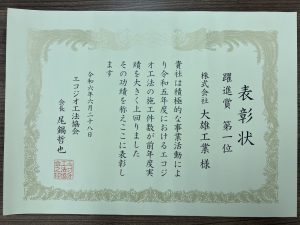 表彰状
躍進賞 第一位
株式会社 大雄工業 様
貴社は積極的な事業活動によ
り令和五年度におけるエコジ
オ工法の施工件数が前年度実
績を大きく上回りました
その功績を称えここに表彰し
ます
令和六年六月二十八日
エコジオ工法協会
会長 尾鍋哲也